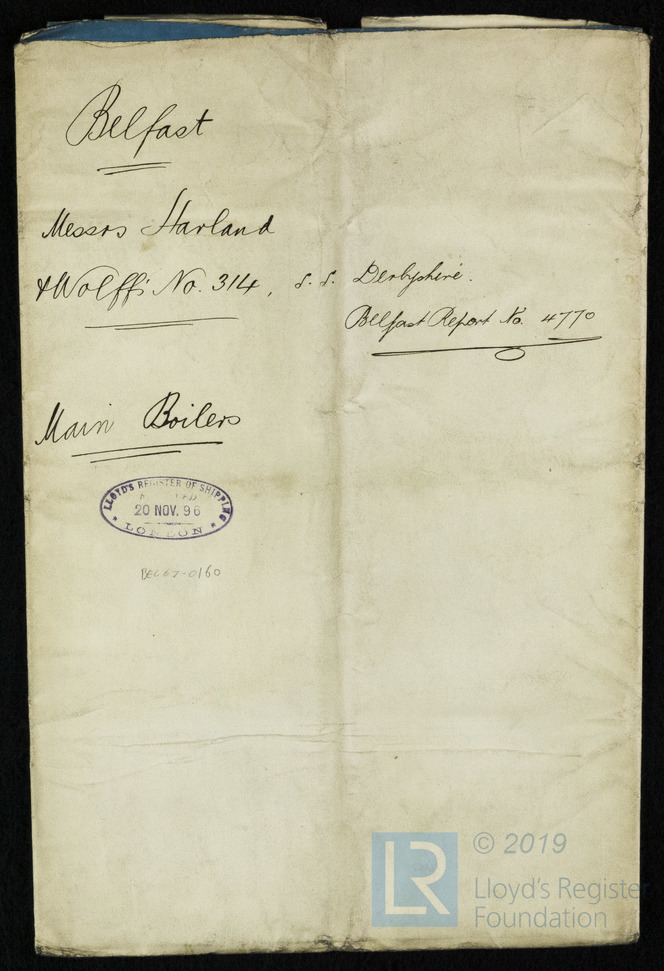 Belfast
Messrs Harland
& Wolff's No. 314, s.s. Derbyshire.
Belfast Report No. 4770
Main Boilers
LLOYD'S REGISTER OF SHIPPING
20 NOV. 96
LONDON
BEL67-0160
© 2019
LR
Lloyd's Register
Foundation